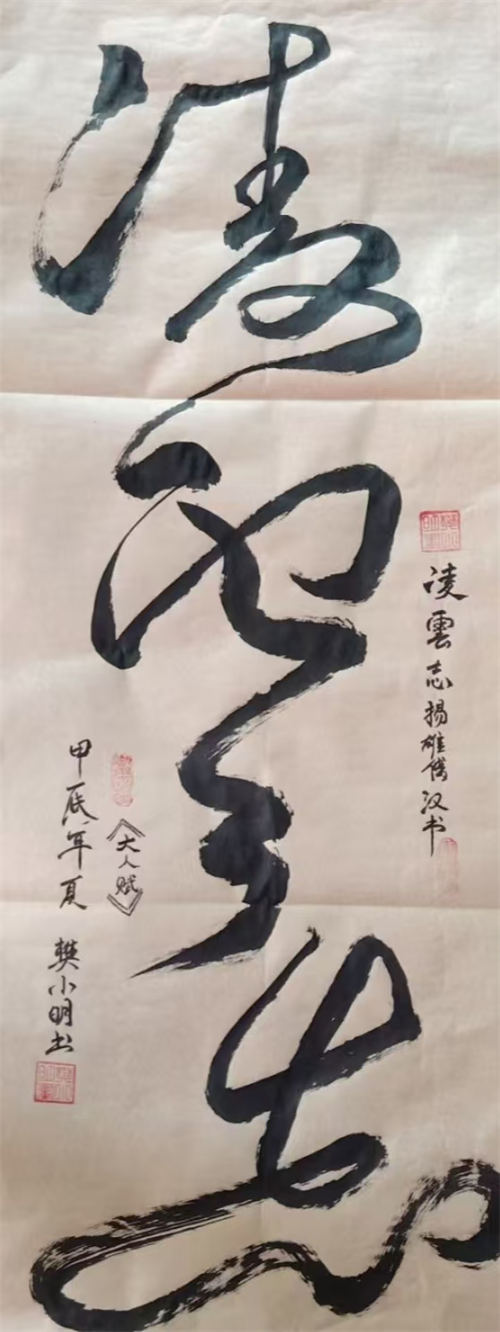 凌雲志
凌雲志扬雄傳汉书
《大人赋》
甲辰年夏
樊小明书